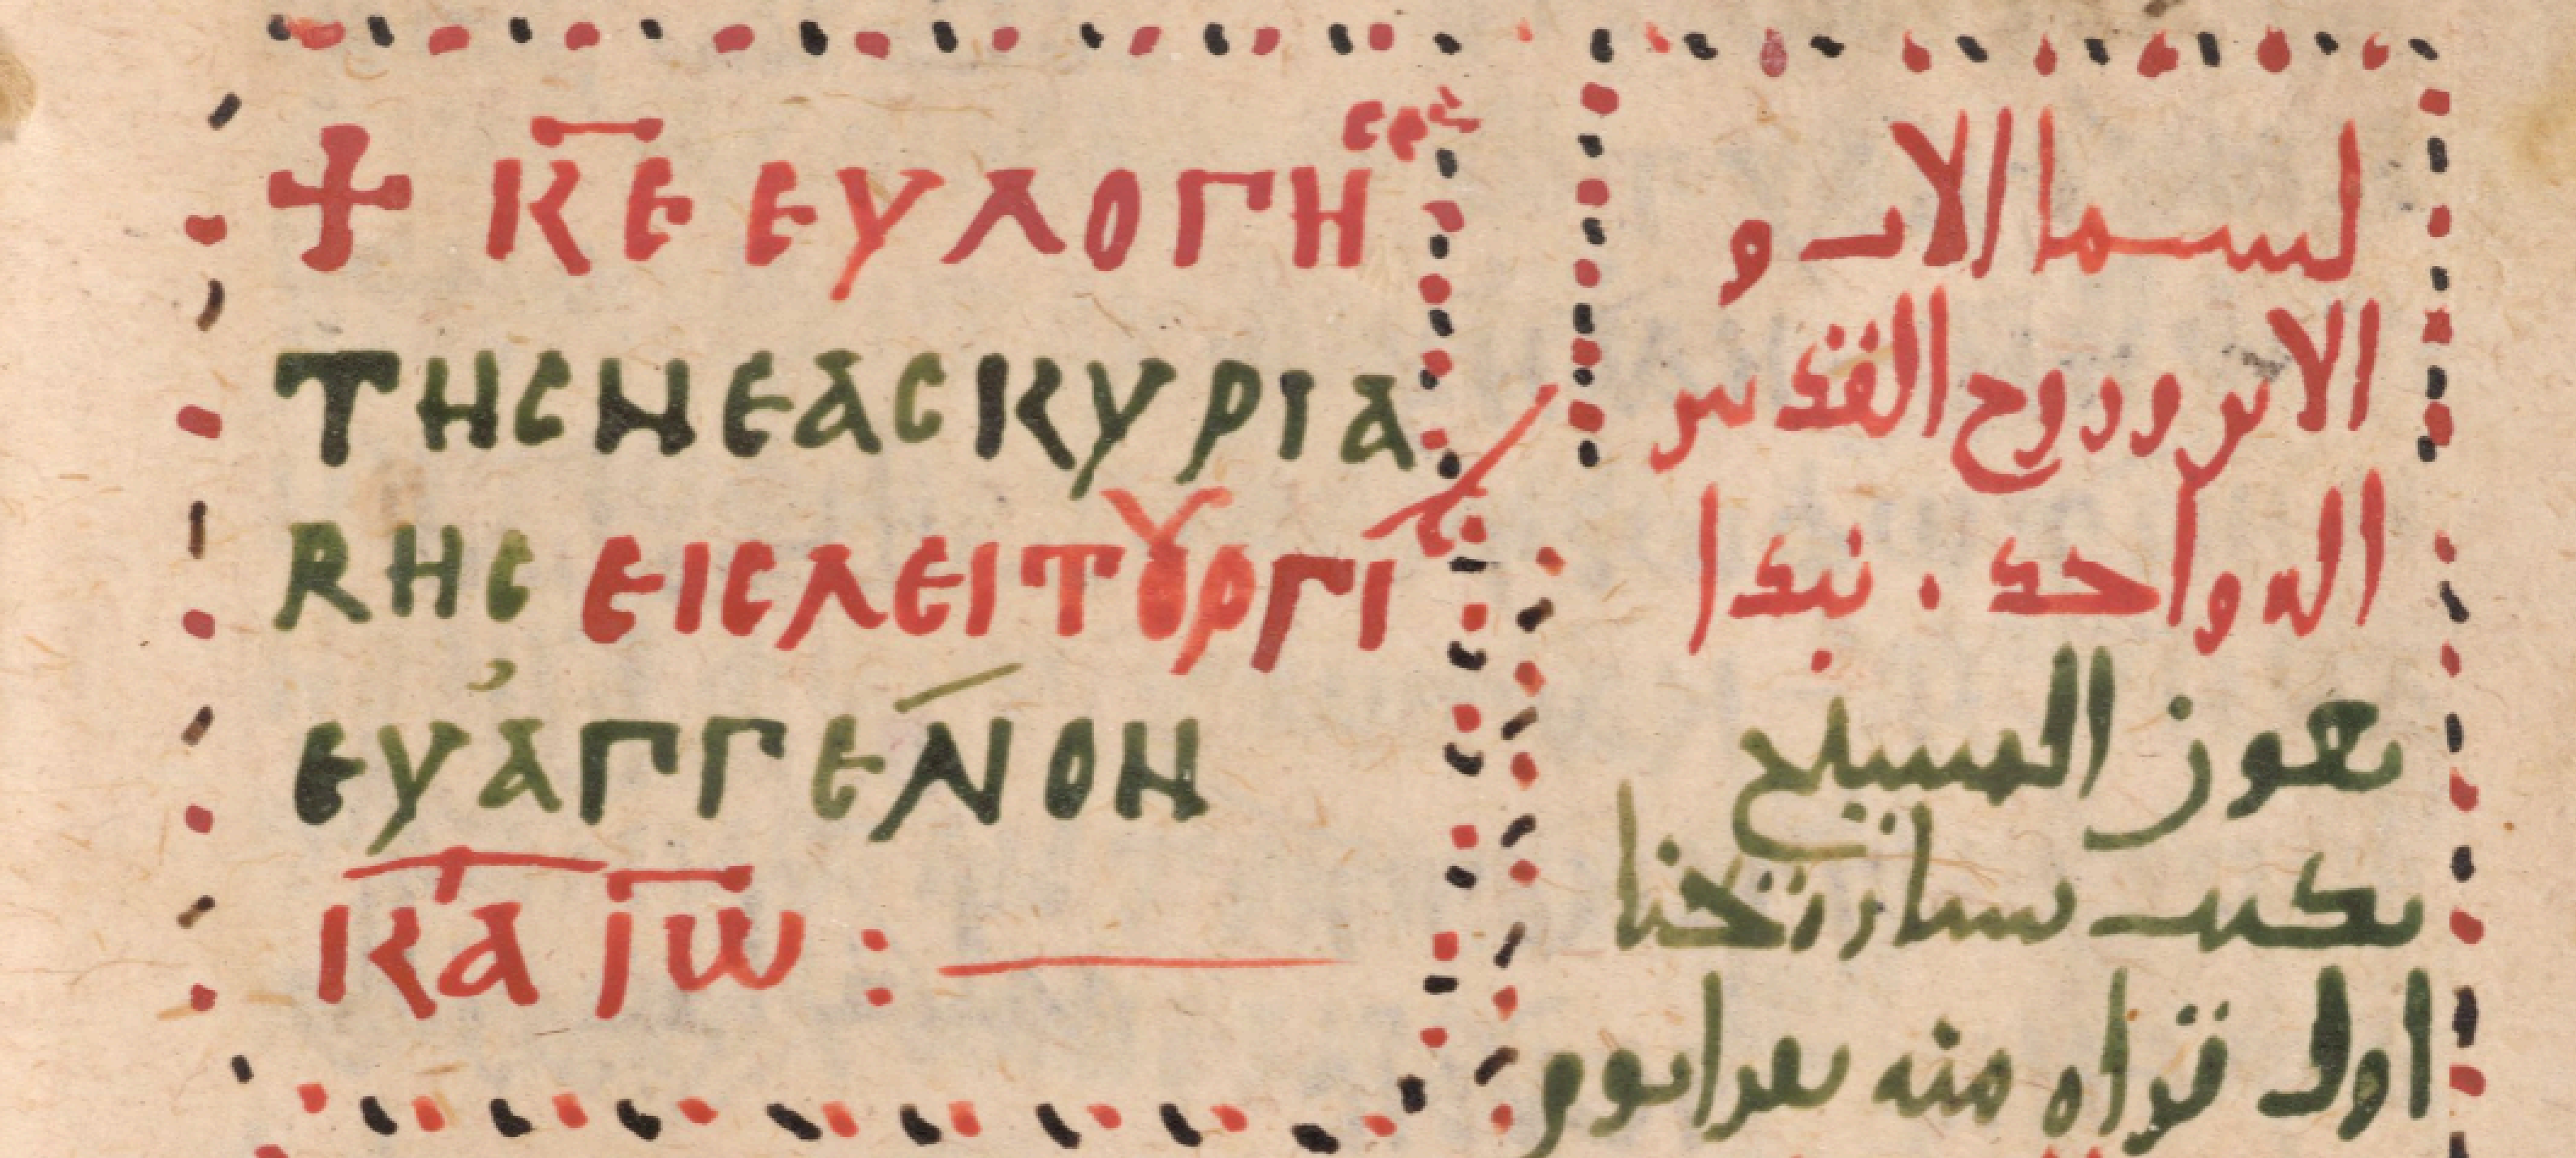 + Κ̅Ε ΕΥΛΟΓΗ
ΤΗC ΝΕΑC ΚΥΡΙΑ
ΚΗC ΕΙC ΛΕΙΤȢΡΓΙ
ΕΥΑΓΓΕΛΙΟΝ
ΚΑ Ι̅Ω̅ :
لسم الاب و
الابن وروح القدس
اله واحد . نبدا
بعون المسيح
بكتب بشارة يحنا
اول قراه منه بعد اليوم